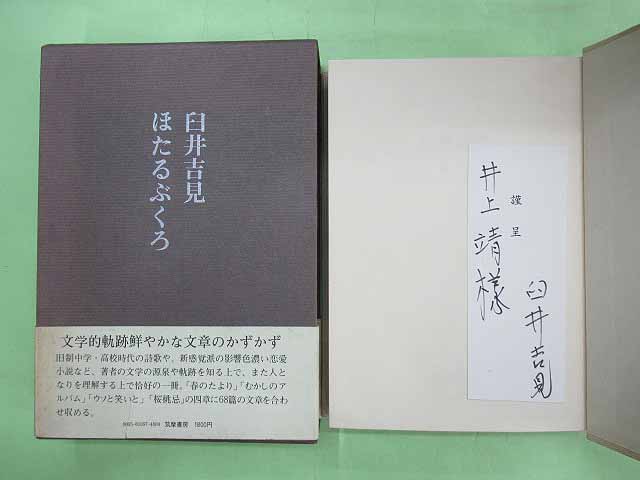 臼井吉見
ほたるぶくろ
文学的軌跡鮮やかな文章のかずかず
旧制中学・高校時代の詩歌や、新感覚派の影響色濃い恋愛
小説など、著者の文学の源泉や軌跡を知る上で、また人と
なりを理解する上で恰好の一冊。「春のたより」「むかしのア
ルバム」「ウソと笑いと」「桜桃忌」の四章に68篇の文章を合わ
せ収める。
筑摩書房 1800円
謹呈
井上靖様
臼井吉見